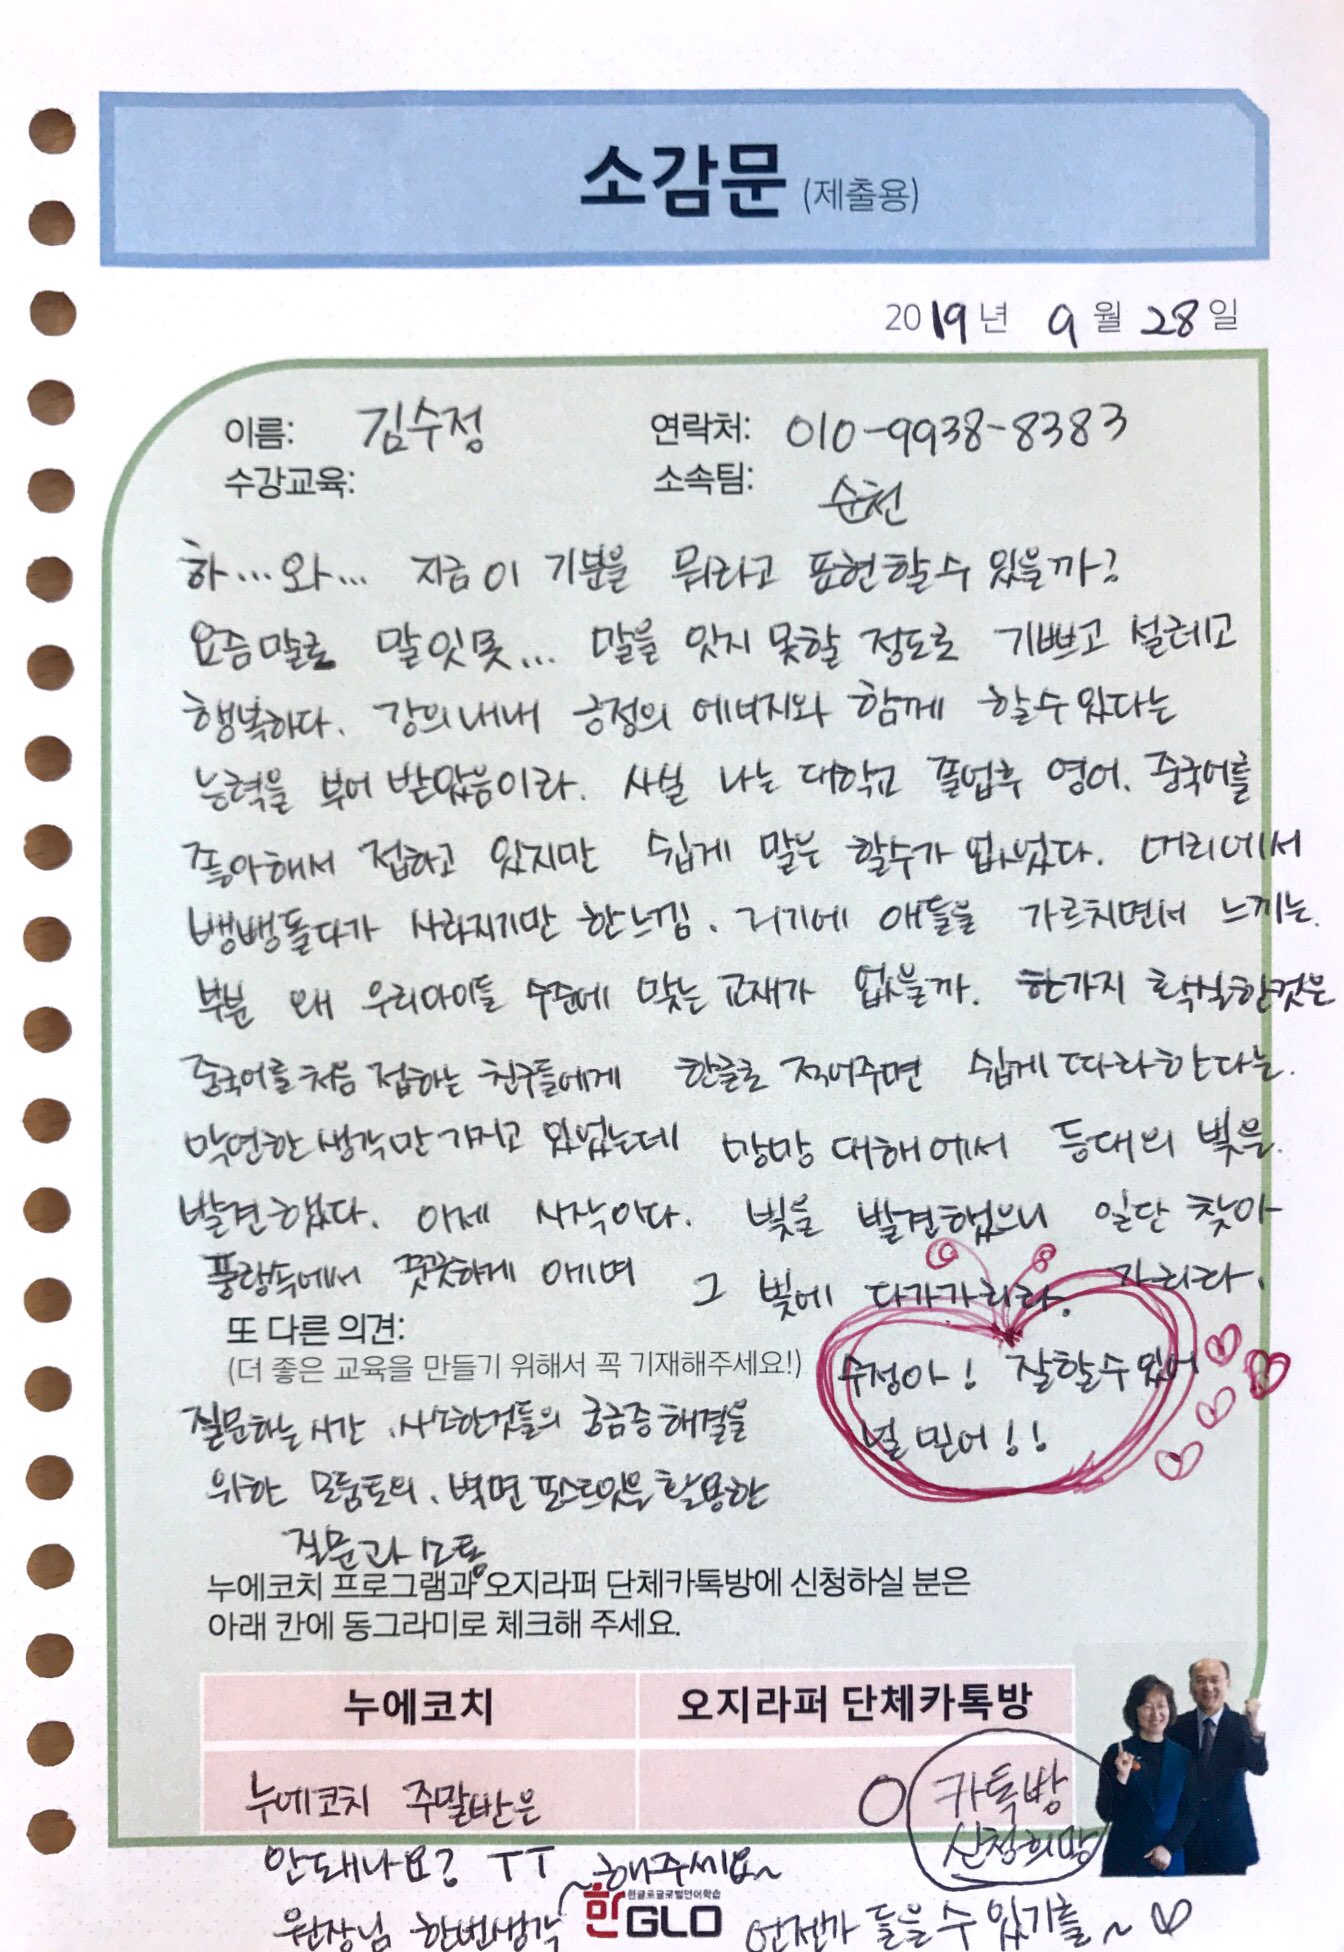 소감문 (제출용)
2019년 9월 28일
이름: 김수정 연락처: 010-9938-8383
수강교육: 소속팀: 순천
하...와... 지금 이 기분을 뭐라고 표현할수 있을까?
요즘말로 말잇못... 말을 잇지 못할 정도로 기쁘고 설레고
행복하다. 강의내내 긍정의 에너지와 함께 할수있다는
능력을 부여 받았음이라. 사실 나는 대학교 졸업후 영어. 중국어를
좋아해서 접하고 있지만 쉽게 말을 할수가 없었다. 머리에서
뱅뱅돌다가 사라지기만 한느낌. 거기에 애들을 가르치면서 느끼는.
부분 왜 우리아이들 수준에 맞는 교재가 없을까. 한가지 확실한것은
중국어를 처음 접하는 친구들에게 한글로 적어주면 쉽게 따라한다는.
막연한 생각만 가지고 있었는데 망망 대해에서 등대의 빛을.
발견했다. 이제 시작이다. 빛을 발견했으니 일단 찾아
풍랑속에서 꿋꿋하게 헤며 그 빛에 다가가리라. 가리라.
또 다른 의견:
(더 좋은 교육을 만들기 위해서 꼭 기재해주세요!)
수정아! 잘할수있어
널 믿어!!
질문하는 시간, 사소한것들의 궁금증 해결을
위한 모둠토의, 벽면 포스트잇을 활용한
질문과 소통
누에코치 프로그램과 오지라퍼 단체카톡방에 신청하실 분은
아래 칸에 동그라미로 체크해 주세요.
누에코치 오지라퍼 단체카톡방
누에코치 주말반은 O 카톡방
안돼나요? ㅜㅜ ~해주세요~ 신청희망
원장님 한번생각 언젠가 들을 수 있기를~♡
한글로글로벌언어학습
한GLO